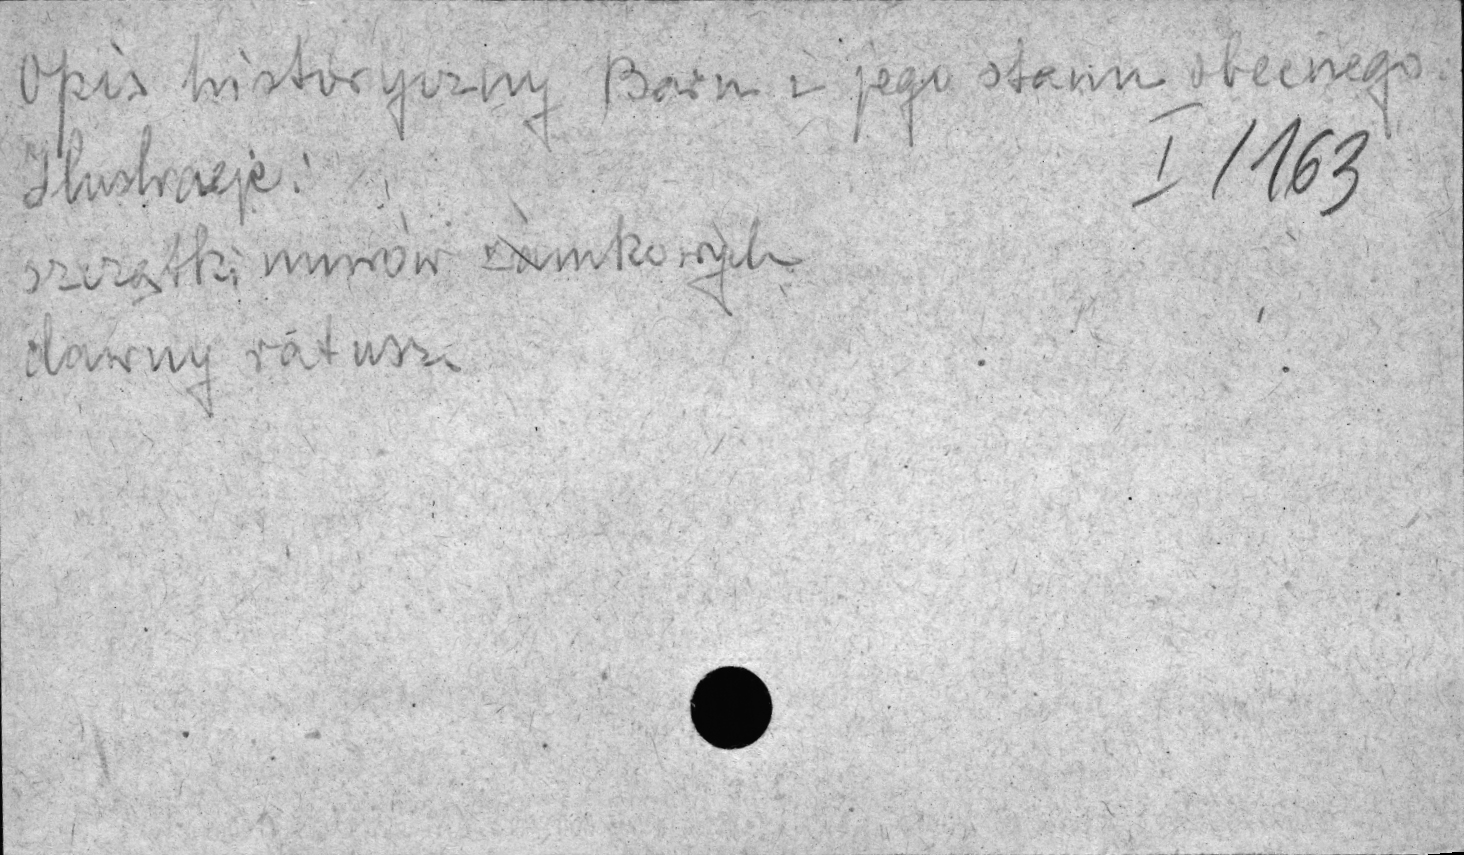 Opis historyczny Baru i jego stanu obecnego.
I/163
Ilustracje:
szczątki murów zamkowych
dawny ratusz